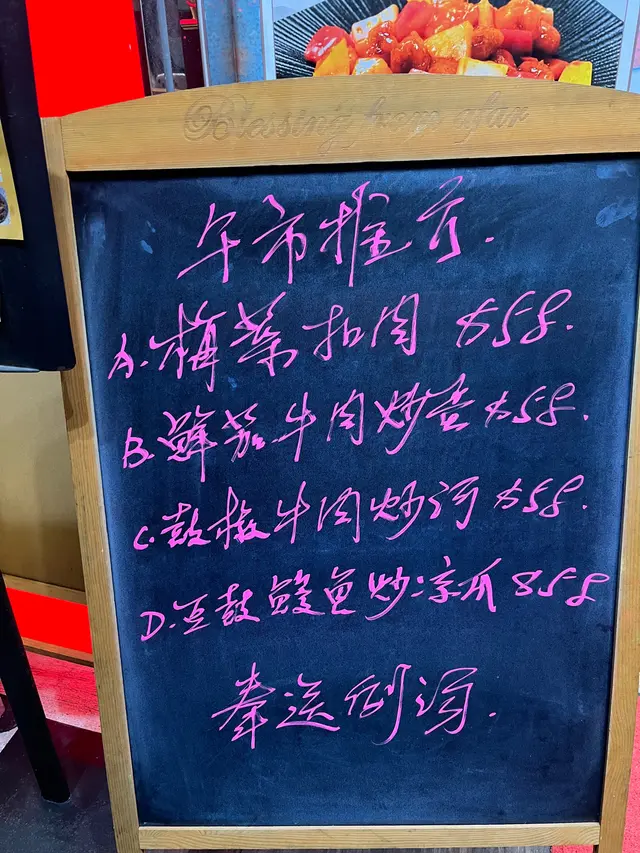 Blessing home afar
午市推介.
A.梅菜扣肉 $58.
B.鲜茄牛肉炒蛋 $58.
C.鼓椒牛肉炒河 $58.
D.豆鼓鲮鱼炒凉瓜 $58
奉送例汤.